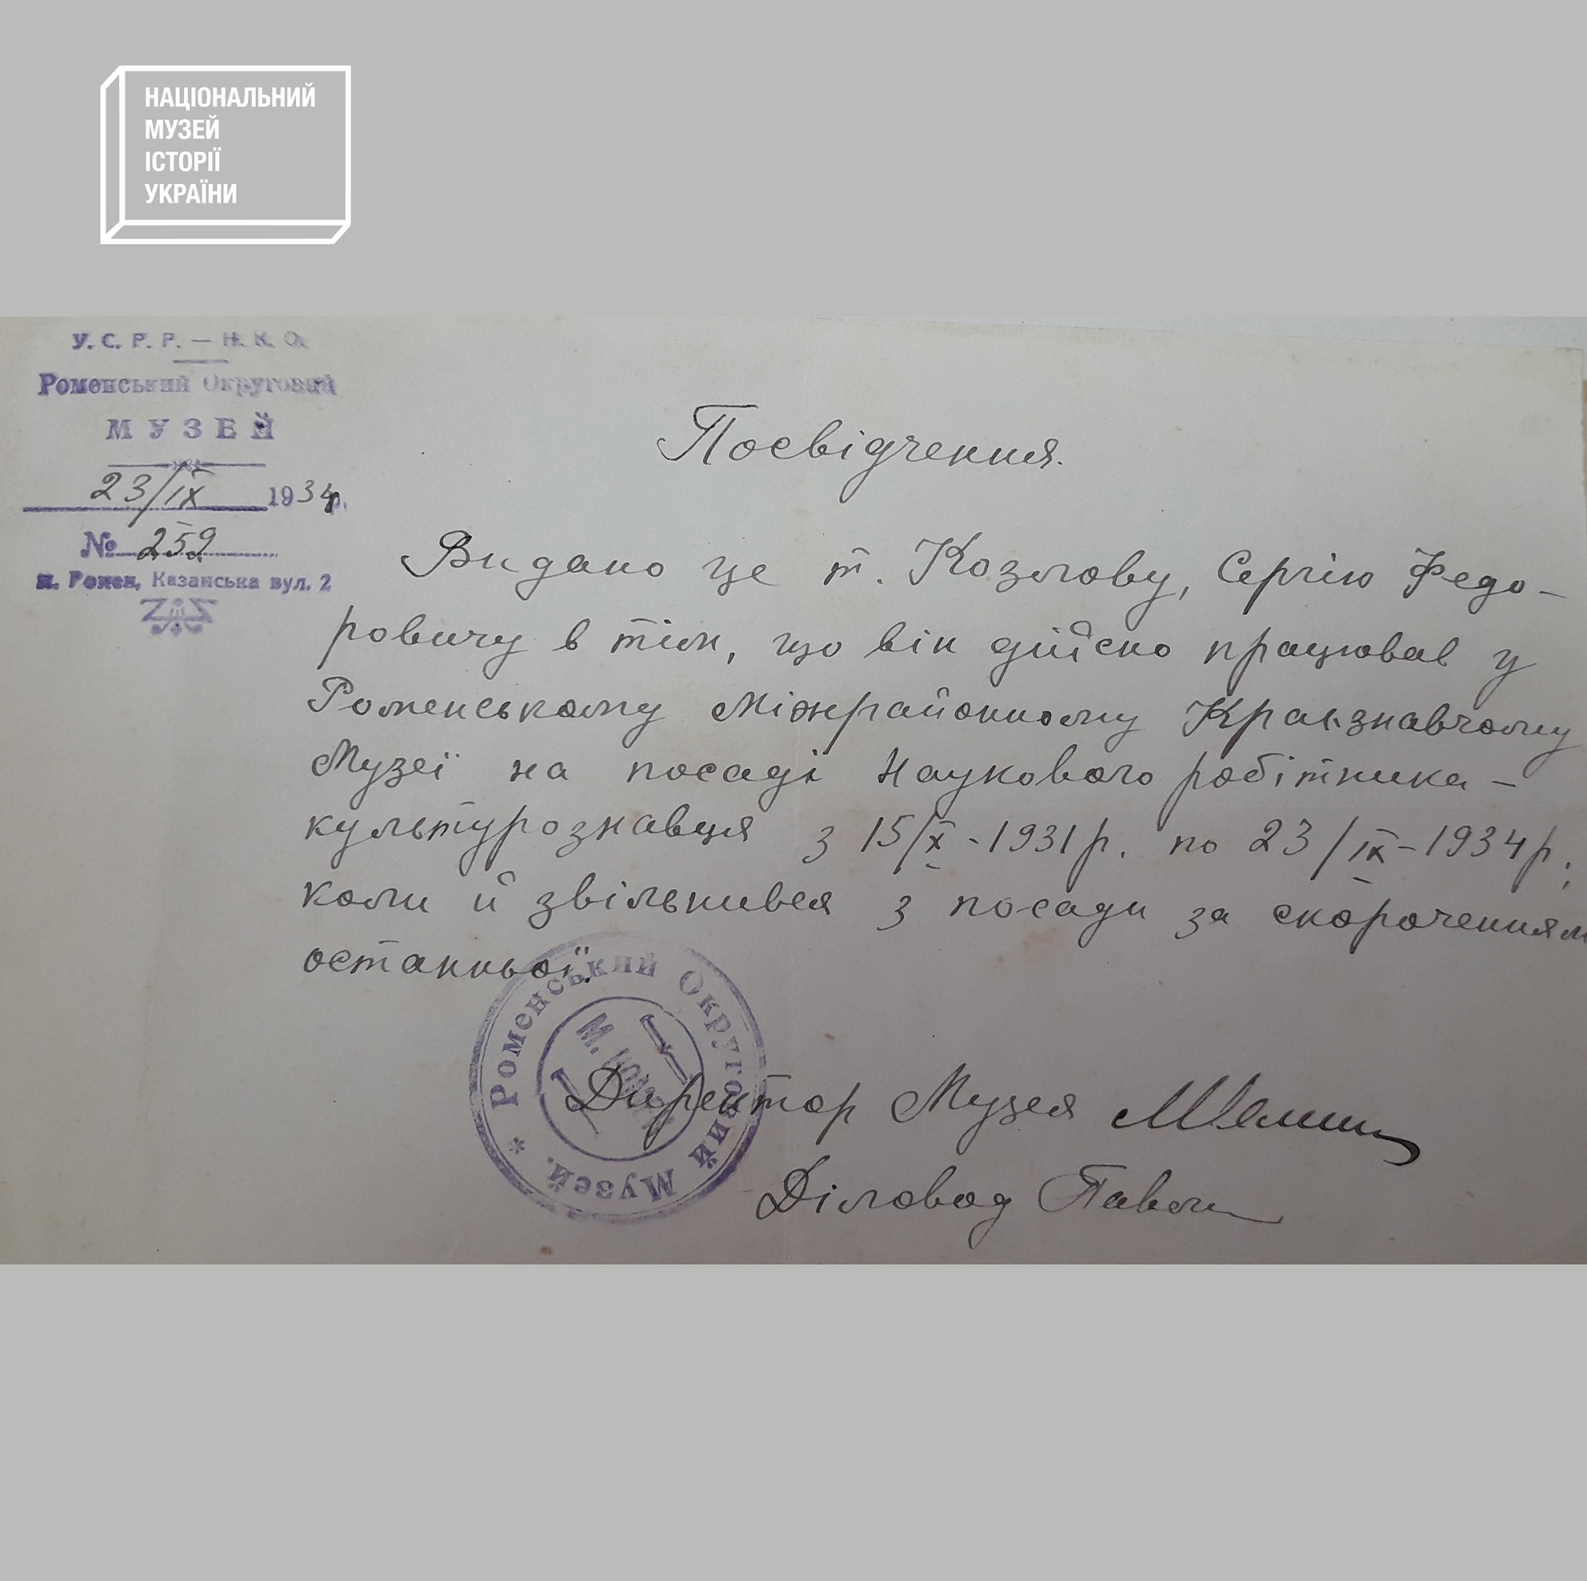 НАЦІОНАЛЬНИЙ
МУЗЕЙ
ІСТОРІЇ
УКРАЇНИ
У. С. Р. Р. — Н. К. О.
Роменський Округовий
МУЗЕЙ
23/IX 1934р.
№ 252
м. Ромен, Казанська вул. 2
Посвідчення.
Видано це т. Козлову, Сергію Федо-
ровичу в тім, що він дійсно працював у
Роменському Міжрайонному Краєзнавчому
Музеї на посаді Наукового робітника-
культурознавця з 15/X-1931р. по 23/IX-1934р.,
коли й звільнився з посади за скороченням
останньої.
Роменський Округовий Музей.
М. Ромен
Директор Музея
Діловод